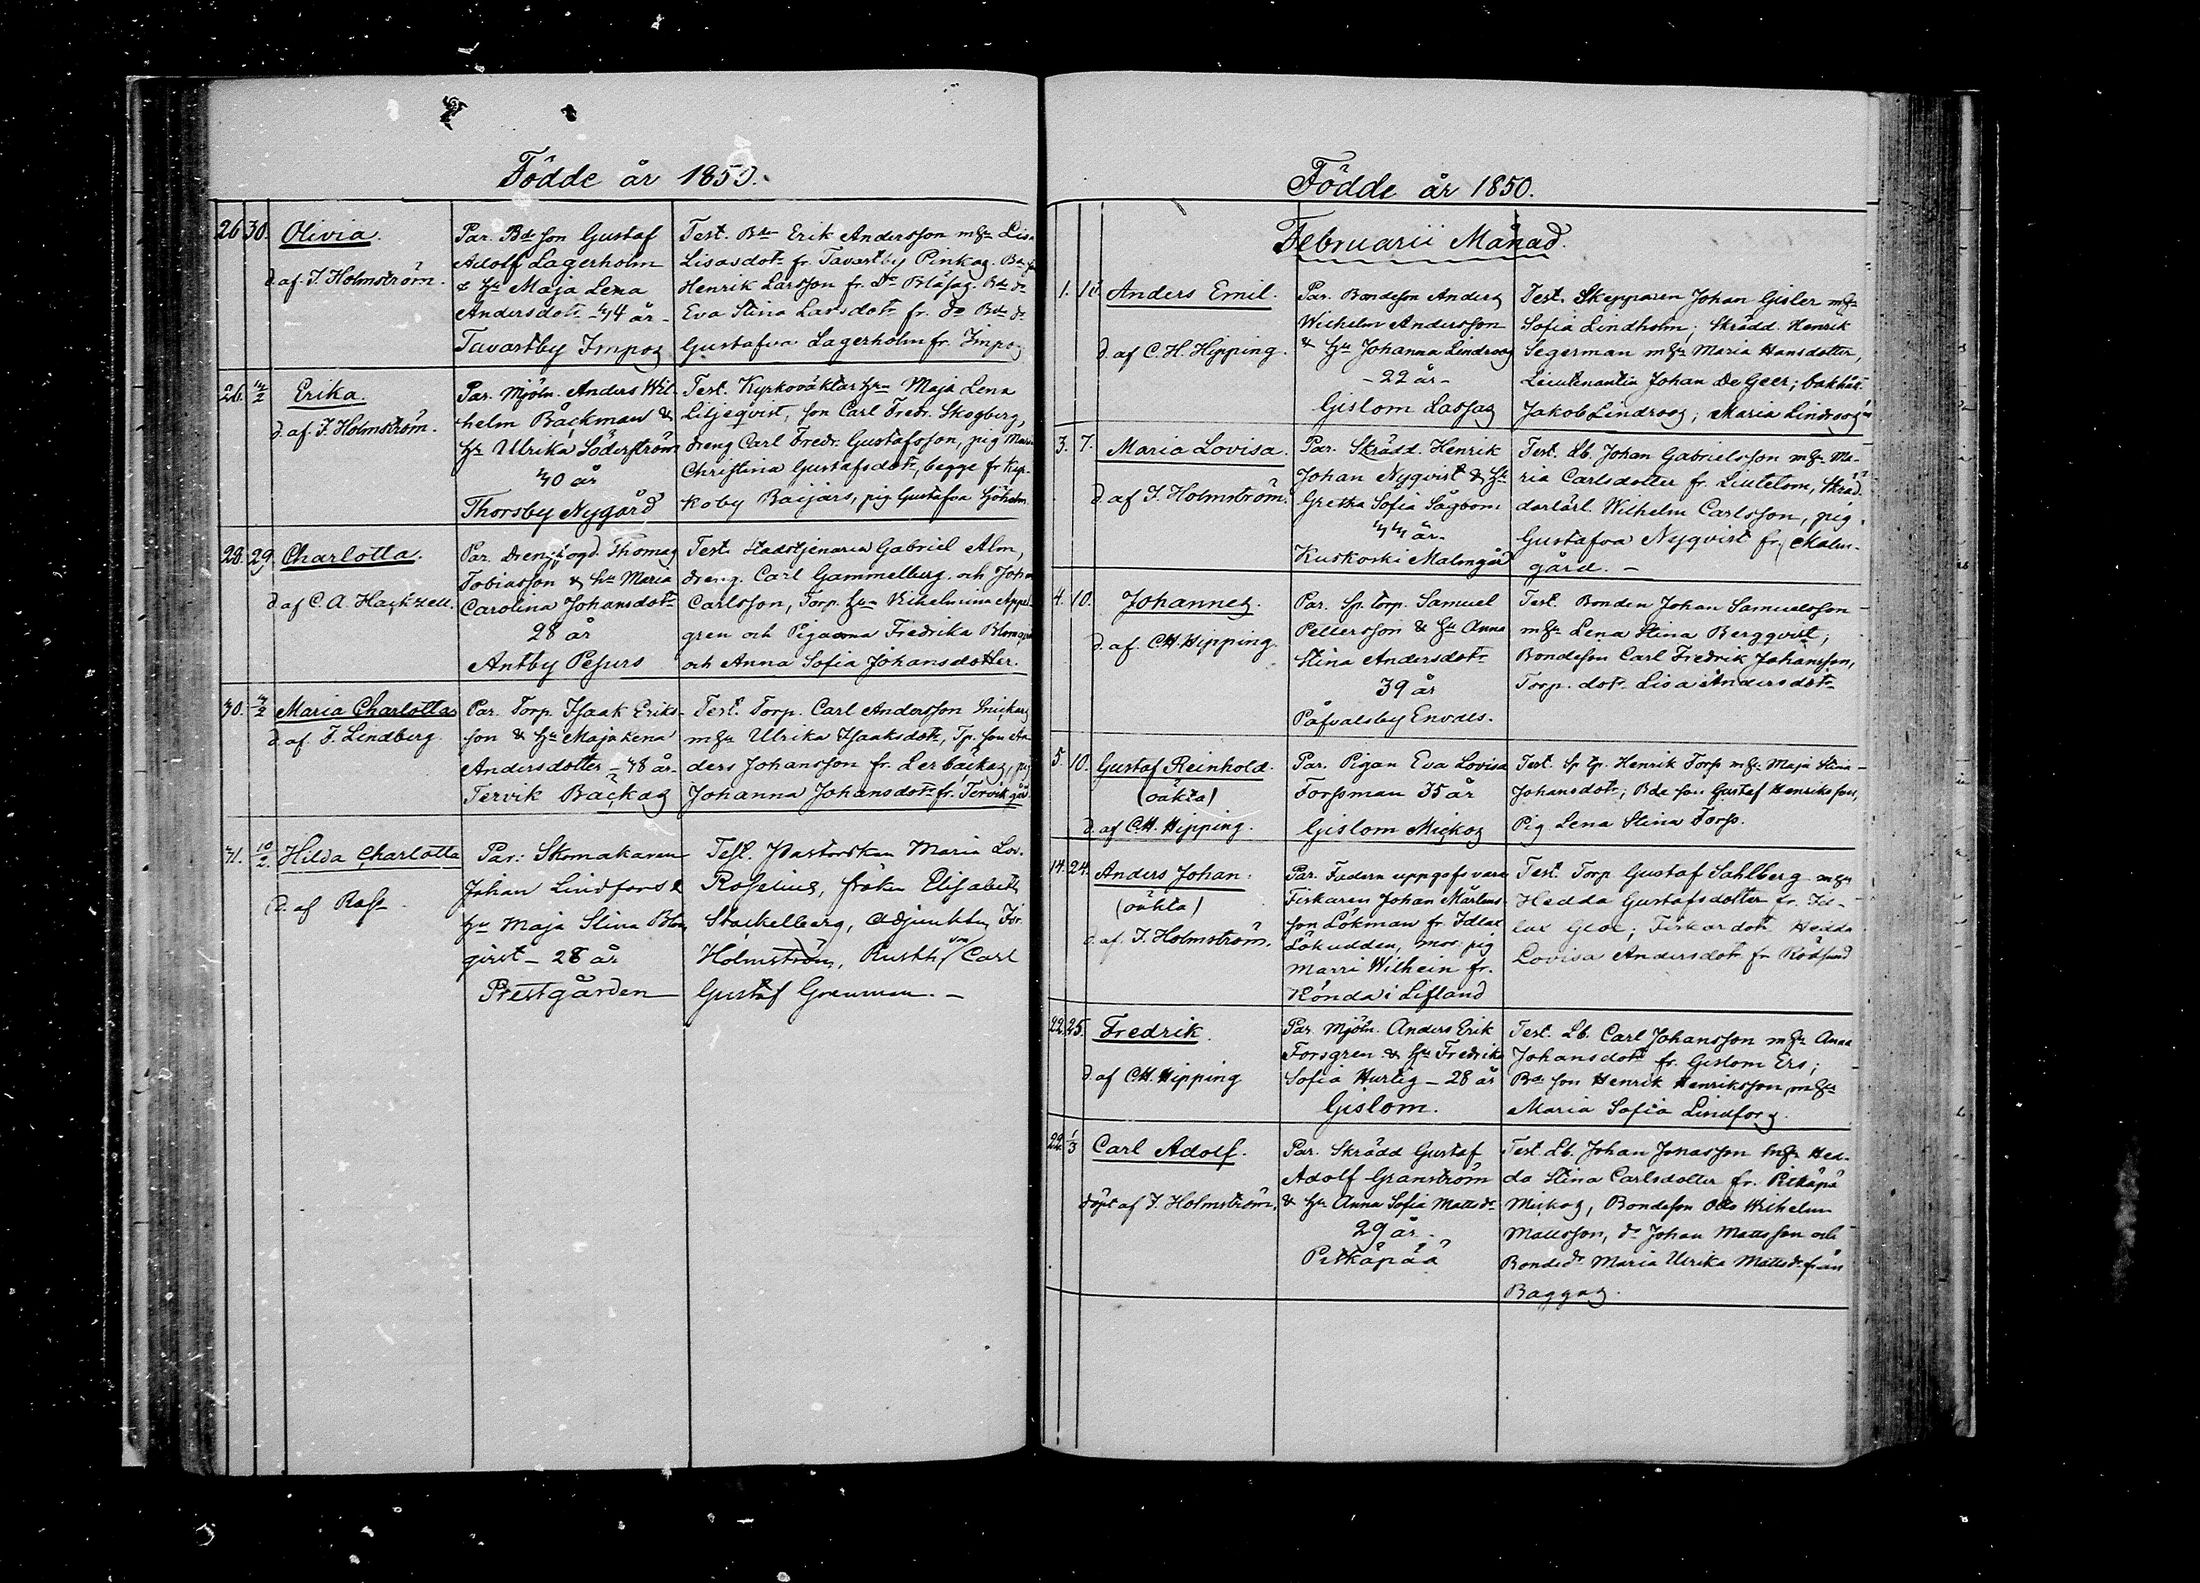 Födde år 1850.
26 30. Olivia.
d. af. F. Holmström.
Par. Bde son Gustaf
Adolf Lagerholm
& hu Maja Lena
Andersdotr 44 år
Tavastby Impog
Test. Bdn Erik Andersson m hu Lisa
Lisasdotr fr. Tavastby Pinkag. Bdes
Henrik Larsson fr. Do Blåsag. Bde do
Eva Stina Larsdotr fr. Do Bde do
Gustafva Lagerholm fr. Impog
26. 4/2 Erika.
d. af. F. Holmström.
Par. Mjöln. Anders Wil-
helm Bäckman &
hu Ulrika Söderström
40 år
Thorsby Nygård
Test. Kyrkoväktar hun Maja Lena
Liljeqvist, son Carl Fredr. Skogberg,
dreng Carl Fredr. Gustafsson, pig Maria
Christina Gustafsdotr, begge fr. Kyr-
koby Baijars, pig Gustafva Sjöholm
28. 29. Charlotta.
d. af C. A. Hackzell.
Par. Drengfogd. Thomas
Tobiasson & hu Maria
Carolina Johansdotr
28 år
Antby Pesurs
Test. Stadstjenaren Gabriel Alm,
dreng. Carl Gammelberg och Johan
Carlsson, Torp. hun Vilhelmina Appel
gren och Pigorna Fredrika Blomqvist
och Anna Sofia Johansdotter.
30. 3/2 Maria Charlotta
d. af. F. Lindberg
Par. Torp. Isaak Eriks-
son & hu Maja Lena
Andersdotter 38 år
Tervik Backag
Test. Torp. Carl Andersson Snickars
m hu Ulrika Isaaksdotr, Tp. son An
ders Johansson fr. Lerbackag, pig
Johanna Johansdotr fr. Tervik gård
31. 10/2. Hilda Charlotta
d. af Rosk
Par: Skomakaren
Johan Lindfors &
hu Maja Stina Blom
qvist – 28 år
Prestgården
Test. Pastorskan Maria Lov.
Roselius, fröken Elisabeth
Stackelberg, adjunkten For.
Holmström, Rusth. son Carl
Gustaf Grenman. –
Födde år 1850.
Februarii Månad.
1. 10. Anders Emil.
d. af C. H. Hipping.
Par. Bondeson Anders
Wilhelm Andersson
& hu Johanna Lindroos
– 22 år –
Gislom Lassag
Test. Skepparen Johan Gisler m hu
Sofia Lindholm; Skrädd. Henrik
Segerman m hu Maria Hansdotter,
Lieutenantin Johan De Geer; bakhåll
Jakob Lindroos; Maria Lindroos
3. 7. Maria Lovisa.
d. af F. Holmström.
Par. Skrädd. Henrik
Johan Nyqvist & hu
Gretha Sofia Sågbom
44 år
Kuskoski Malmgård
Test. Lb. Johan Gabrielsson m hu Ma-
ria Carlsdotter fr. Liutelom, Skräd-
darlärl. Wilhelm Carlsson, pig.
Gustafva Nyqvist fr. Malm-
gård. –
4. 10. Johannes.
d. af. C. H. Hipping.
Par. Sp. torp. Samuel
Pettersson & hu Anna
Stina Andersdotr
39 år
Påfvalsby Envdes.
Test. Bonden Johan Samuelsson
m hu Lena Stina Bergqvist,
Bondeson Carl Fredrik Johansson,
Torp. dotr Lisa Andersdotr
5. 10. Gustaf Reinhold.
(oäkta)
d. af C. H. Hipping.
Par. Pigan Eva Lovisa
Forssman 35 år
Gislom Mickog
Test. Sp. tp. Henrik Forss m hu Maja Stina
Johansdotr; Bde son Gustaf Henriksson,
Pig Lena Stina Forss.
14. 24. Anders Johan.
(oäkta)
d. af. F. Holmström.
Par. Fadern uppgafs vara
Fiskaren Johan Mårtens-
son Lökman fr. Idlax
Lökudden, mor: pig
Marri Wilhein fr.
Könda i Lifland
Test. Torp Gustaf Sahlberg m hu
Hedda Gustafsdotter fr. Id-
lax Gloe; Fiskardotr Hedda
Lovisa Andersdotr fr. Rödsund
22. 25. Fredrik.
d. af C. H. Hipping
Par. Mjöln. Anders Erik
Forsgren & hu Fredrika
Sofia Hurtig – 28 år
Gislom.
Test. Lb. Carl Johansson m hu Anna
Johansdotr fr. Gislom Ers;
Bde son Henrik Henriksson, m hu
Maria Sofia Lindfors.
22. 1/3 Carl Adolf.
döpt af F. Holmström.
Par. Skrädd Gustaf
Adolf Granström
& hu Anna Sofia Mattsdr
29 år
Pitkäpää
Test. Lb. Johan Jonasson m hu Hed-
da Stina Carlsdotter fr. Pitkäpä
Mickos, Bondeson Otto Wilhelm
Mattsson, do Johan Mattsson och
Bonded. Maria Ulrika Mattsdr från
Baggas.